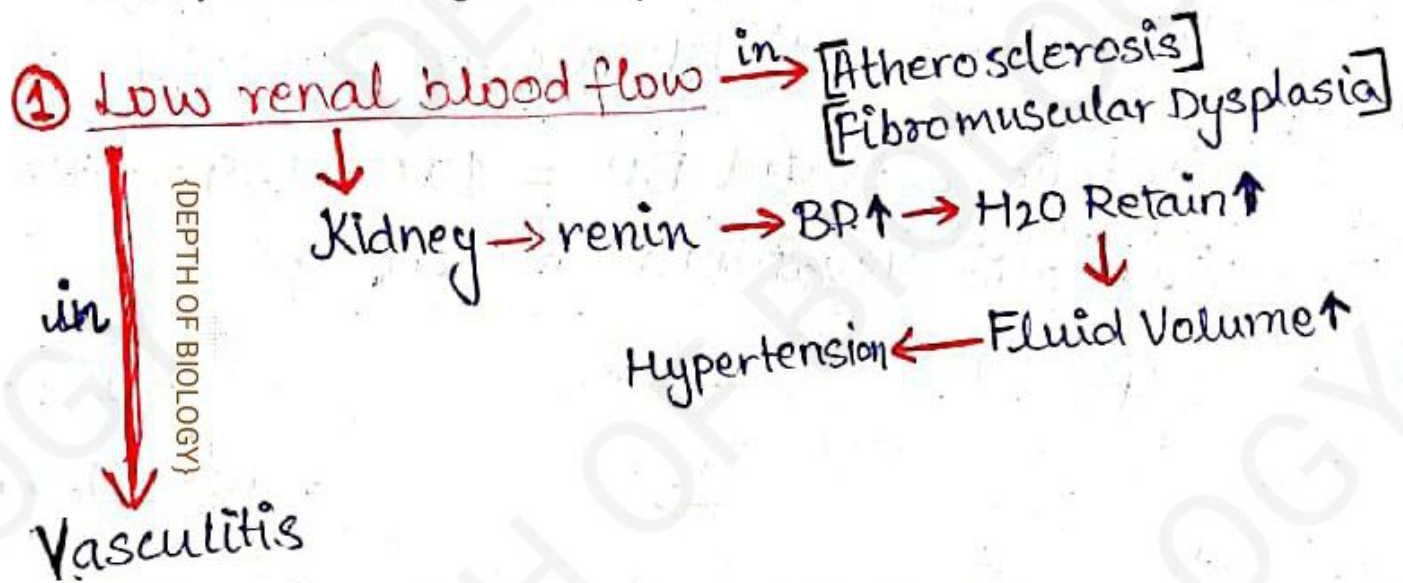 ① Low renal blood flow in→ [Atherosclerosis]
[Fibromuscular Dysplasia]
↓
Kidney → renin → BP↑ → H2O Retain↑
↓
Hypertension ← Fluid Volume↑
in
{DEPTH OF BIOLOGY}
Vasculitis